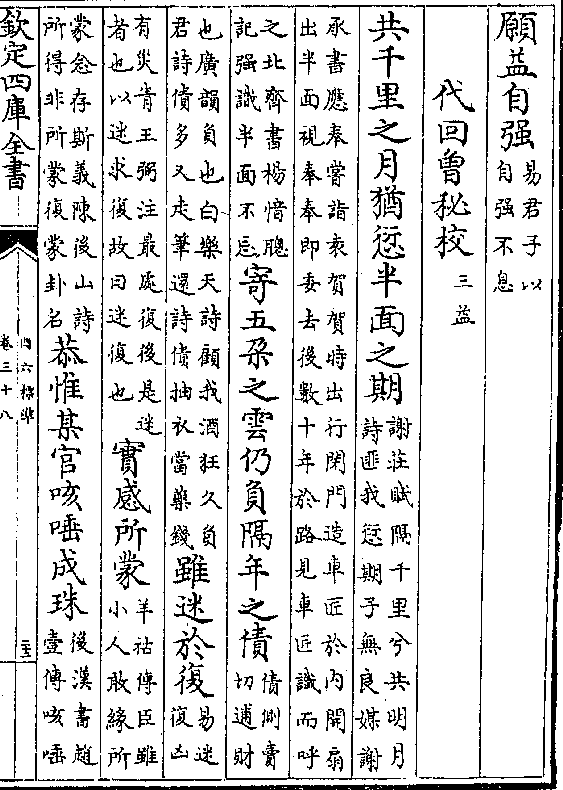 願益自强易君子以自强不息
代回曾秘校三益
共千里之月猶愆半面之期謝莊賦隔千里兮共明月詩匪我愆期子無良媒謝
承書應奉嘗詣袁賀賀時出行閉門造車匠於内開扇
出半面視奉奉即委去後數十年於路見車匠識而呼
之北齊書楊愔聰記强識半面不忘寄五朶之雲仍負隔年之債債側賣切逋財
也廣韻負也白樂天詩顧我酒狂久負君詩債多又走筆還詩債抽衣當藥錢雖迷於復易迷復凶
有災眚王弼注最處復後是迷者也以迷求復故曰迷復也實感所蒙羊祜傳臣雖小人敢緣所
蒙念存斯義陳後山詩所得非所蒙復蒙卦名恭惟某官咳唾成珠後漢書趙壹傳咳唾
欽定四庫全書
四六標準
卷三十八